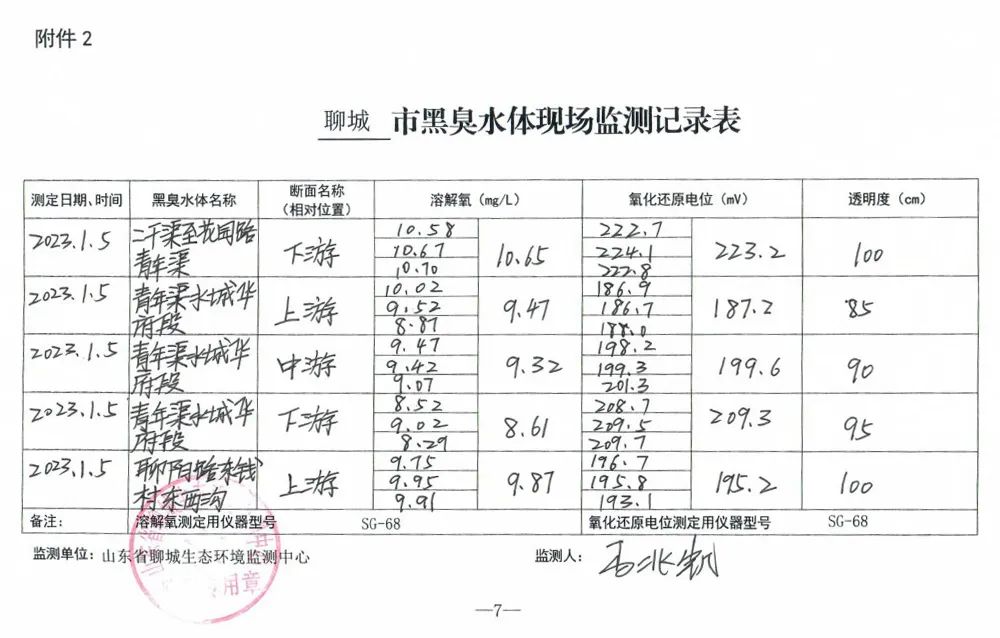 附件 2
聊城 市黑臭水体现场监测记录表
测定日期、时间 黑臭水体名称 断面名称（相对位置） 溶解氧（mg/L） 氧化还原电位（mV） 透明度（cm）
2023.1.5 二干渠至花园路青年渠 下游 10.58 10.67 10.70 10.65 222.7 224.1 222.8 223.2 100
2023.1.5 青年渠水城华府段 上游 10.02 9.52 8.87 9.47 186.9 186.7 188.0 187.2 85
2023.1.5 青年渠水城华府段 中游 9.47 9.42 9.07 9.32 198.2 199.3 201.3 199.6 90
2023.1.5 青年渠水城华府段 下游 8.52 9.02 8.29 8.61 208.7 209.5 209.7 209.3 95
2023.1.5 聊阳路东钱村东西沟 上游 9.75 9.95 9.91 9.87 196.7 195.8 193.1 195.2 100
备注： 溶解氧测定用仪器型号 SG-68 氧化还原电位测定用仪器型号 SG-68
监测单位：山东省聊城生态环境监测中心 监测人：
用章
—7—